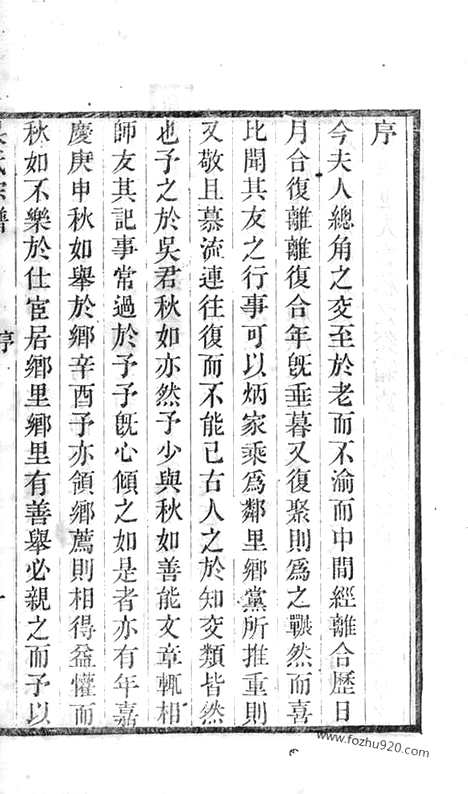 序
今夫人總角之交至於老而不渝而中間經離合歷日
月合復離離復合年旣垂暮又復聚則爲之囅然而喜
比聞其友之行事可以炳家乘爲鄰里鄉黨所推重則
又敬且慕流連往復而不能已古人之於知交類皆然
也予之於吳君秋如亦然予少與秋如善能文章輒相
師友其記事常過於予予旣心傾之如是者亦有年嘉
慶庚申秋如舉於鄉辛酉予亦領鄉薦則相得益懽而
秋如不樂於仕宦居鄉里鄉里有善舉必親之而予以
氏宗譜
序
一
www.fozhu920.com